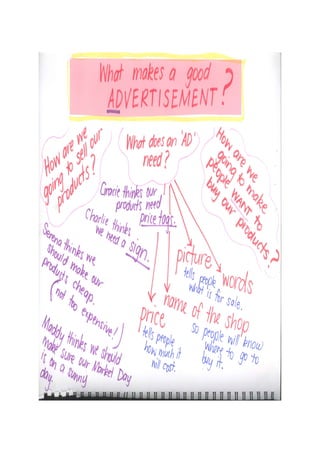 What makes a good
ADVERTISEMENT?
How are we
going to sell our
products?
What does an 'AD'
need?
How are we
going to make
people WANT to
buy our products?
Gracie thinks our
products need
price tags.
Charlie thinks
we need a sign.
Serena thinks we
should make our
products cheap.
(not too expensive!)
Maddy thinks we should
make sure our Market Day
is on a sunny
day.
picture
words
tells people
what is for sale.
name of the shop
so people will know
where to go to
buy it.
price
tells people
how much it
will cost.